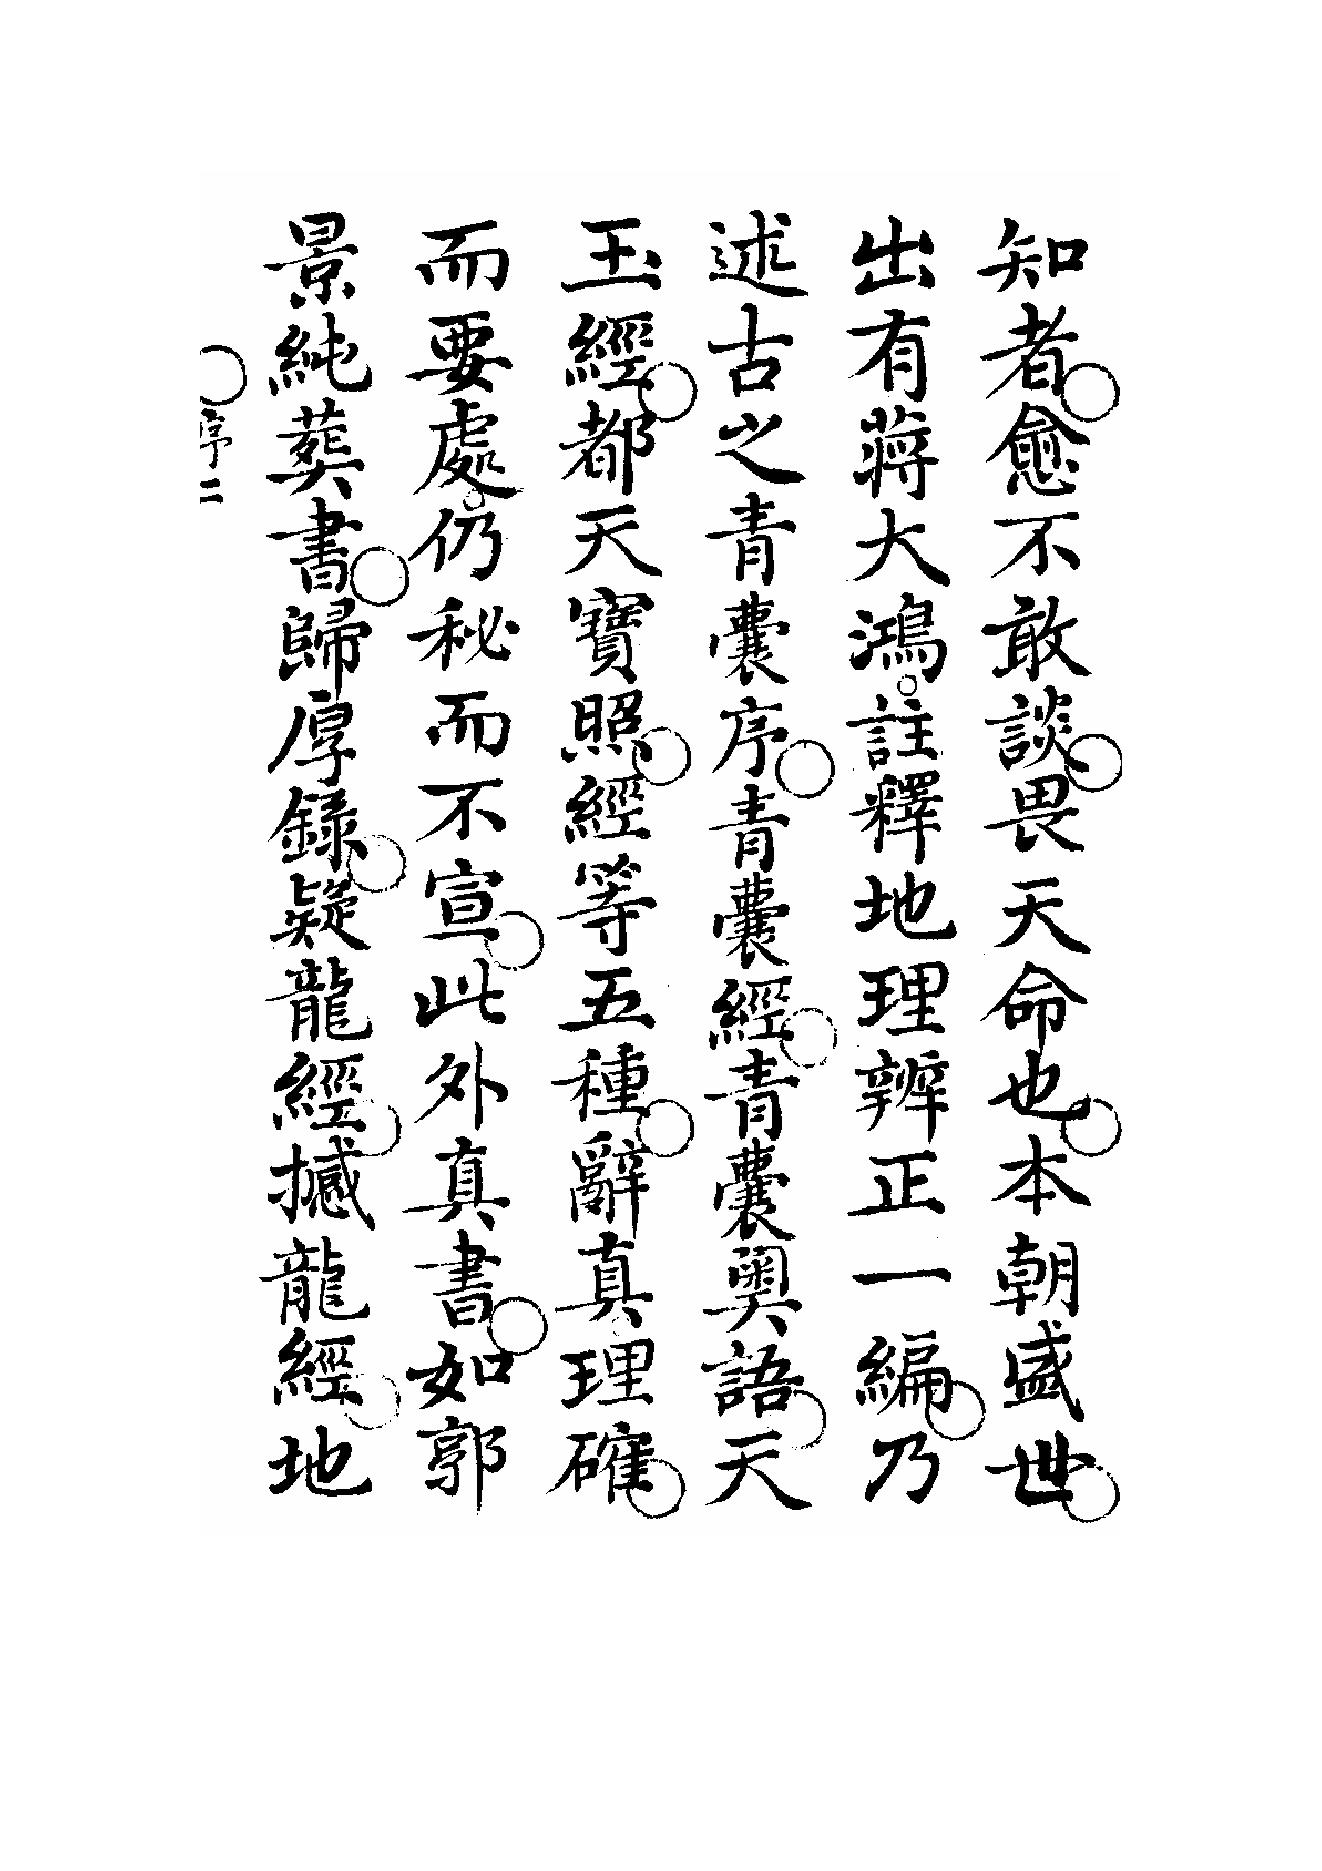 知者愈不敢談畏天命也本朝盛世
出有蔣大鴻註釋地理辨正一編乃
述古之青囊序青囊經青囊奧語天
玉經都天寶照經等五種辭真理確
而要處仍秘而不宣此外真書如郭
景純葬書歸厚錄疑龍經撼龍經地
序二